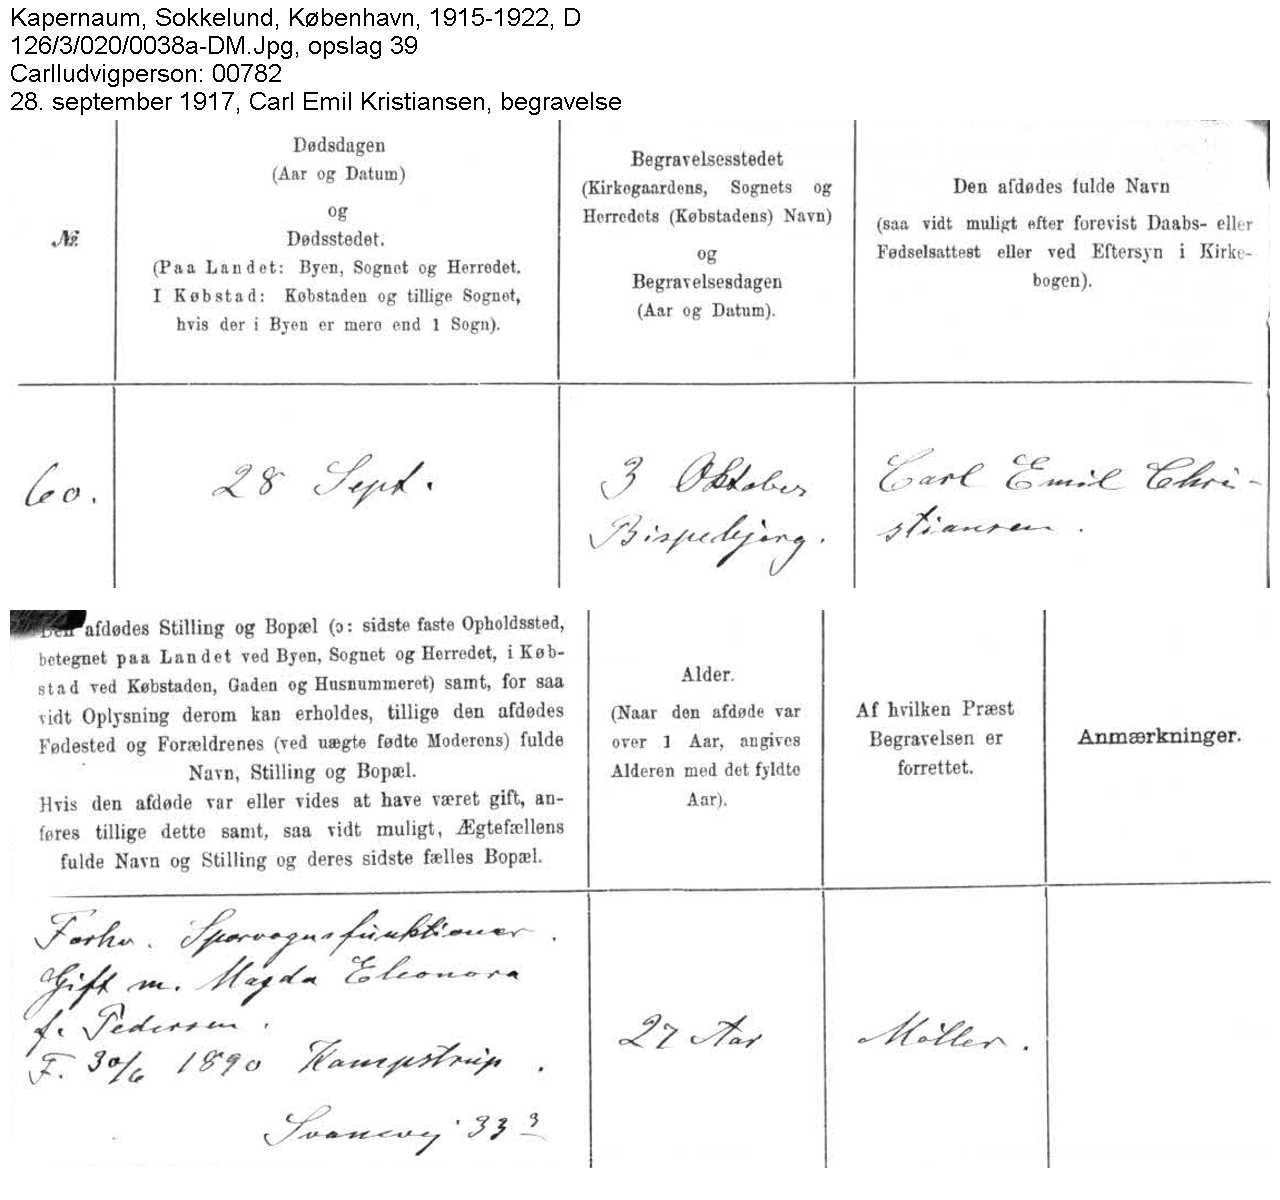 Kapernaum, Sokkelund, København, 1915-1922, D
126/3/020/0038a-DM.Jpg, opslag 39
Carlludvigperson: 00782
28. september 1917, Carl Emil Kristiansen, begravelse
№
Dødsdagen
(Aar og Datum)
og
Dødsstedet.
(Paa Landet: Byen, Sognet og Herredet.
I Købstad: Købstaden og tillige Sognet,
hvis der i Byen er mere end 1 Sogn).
Begravelsesstedet
(Kirkegaardens, Sognets og
Herredets (Købstadens) Navn)
og
Begravelsesdagen
(Aar og Datum).
Den afdødes fulde Navn
(saa vidt muligt efter forevist Daabs- eller
Fødselsattest eller ved Eftersyn i Kirke-
bogen).
60.
28 Sept.
3 Oktober
Bispebjerg.
Carl Emil Chri-
stiansen.
Den afdødes Stilling og Bopæl (ɔ: sidste faste Opholdssted,
betegnet paa Landet ved Byen, Sognet og Herredet, i Køb-
stad ved Købstaden, Gaden og Husnummeret) samt, for saa
vidt Oplysning derom kan erholdes, tillige den afdødes
Fødested og Forældrenes (ved uægte fødte Moderens) fulde
Navn, Stilling og Bopæl.
Hvis den afdøde var eller vides at have været gift, an-
føres tillige dette samt, saa vidt muligt, Ægtefællens
fulde Navn og Stilling og deres sidste fælles Bopæl.
Alder.
(Naar den afdøde var
over 1 Aar, angives
Alderen med det fyldte
Aar).
Af hvilken Præst
Begravelsen er
forrettet.
Anmærkninger.
Forhv. Sporvognsfunktionær.
Gift m. Magda Eleonora
f. Pedersen.
F. 30/6 1890 Kampstrup.
Svanevej 33 3
27 Aar
Møller.